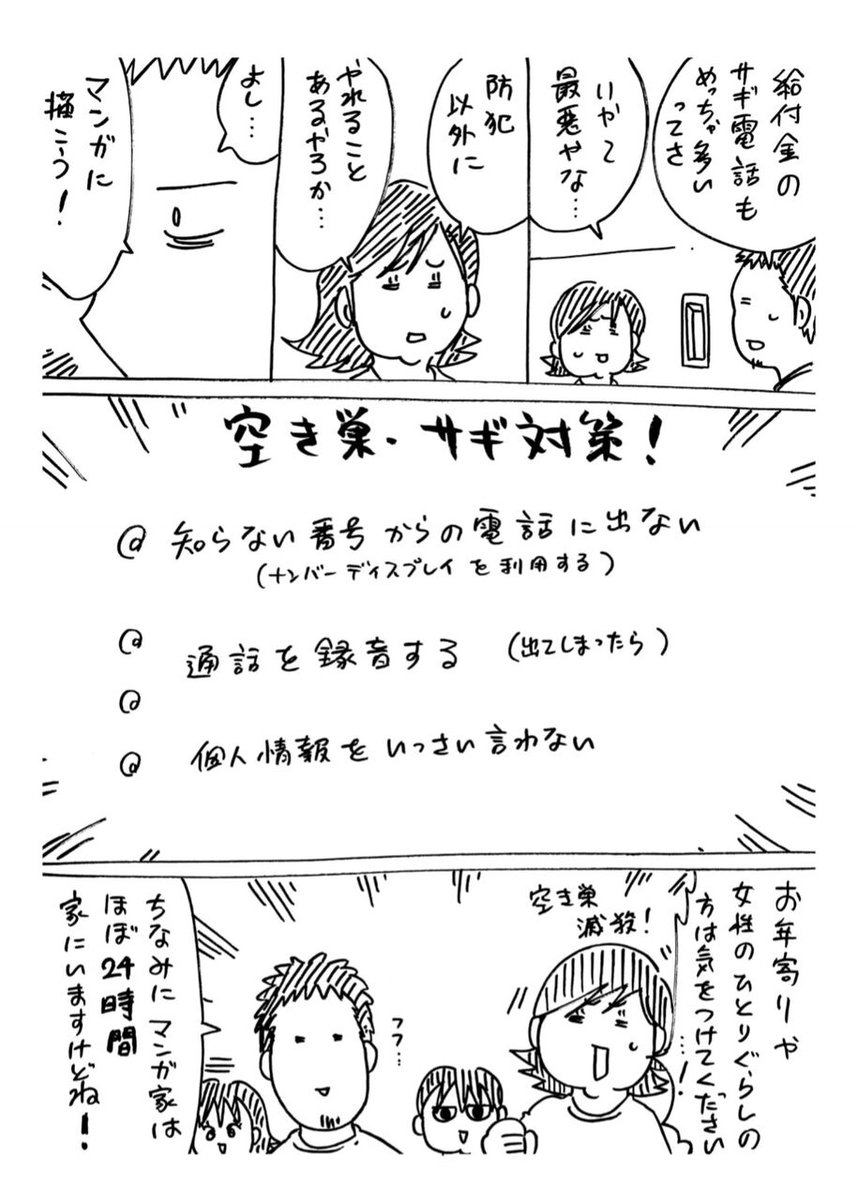 給付金の
サギ電話も
めっちゃ多い
ってさ
いやて
最悪やな…
防犯
以外に
やれること
あるやろか…
よし…
マンガに
描こう!
空き巣・サギ対策!
@ 知らない番号からの電話に出ない
(ナンバーディスプレイを利用する)
@ 通話を録音する (出てしまったら)
@
@ 個人情報をいっさい言わない
お年寄りや
女性のひとりぐらしの
方は気をつけてください
…!
空き巣
滅殺!
フフ…
ちなみにマンガ家は
ほぼ24時間
家にいますけどね!